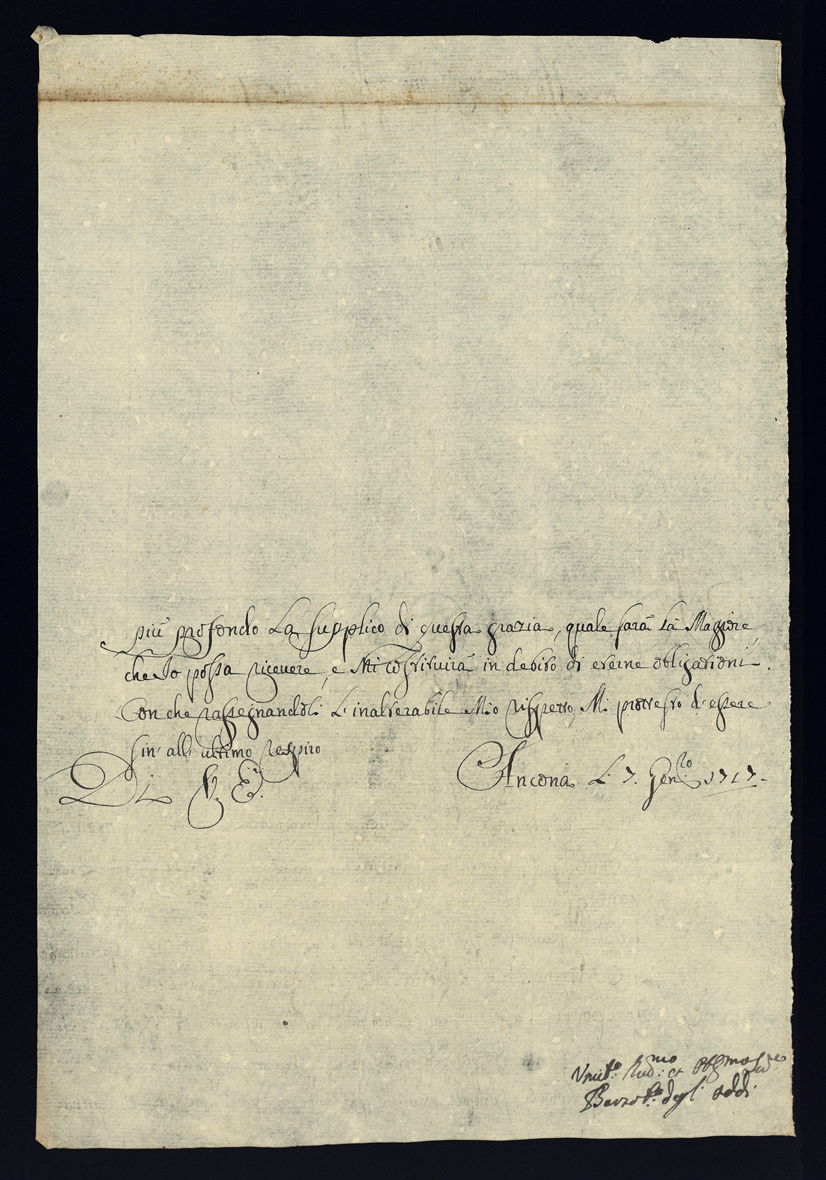 più profondo La supplico di questa grazia, quale sarà la Maggiore,
che Io possa ricevere, e Mi costituirà in debito di eterne obligazioni.
Con che rassegnandoli l'inalterabile Mio rispetto, Mi protesto d'essere
sin' all' ultimo respiro
Di V. E. Ancona Li 7. Gen.ro 1717.
Vmil.o et
degl' Oddi